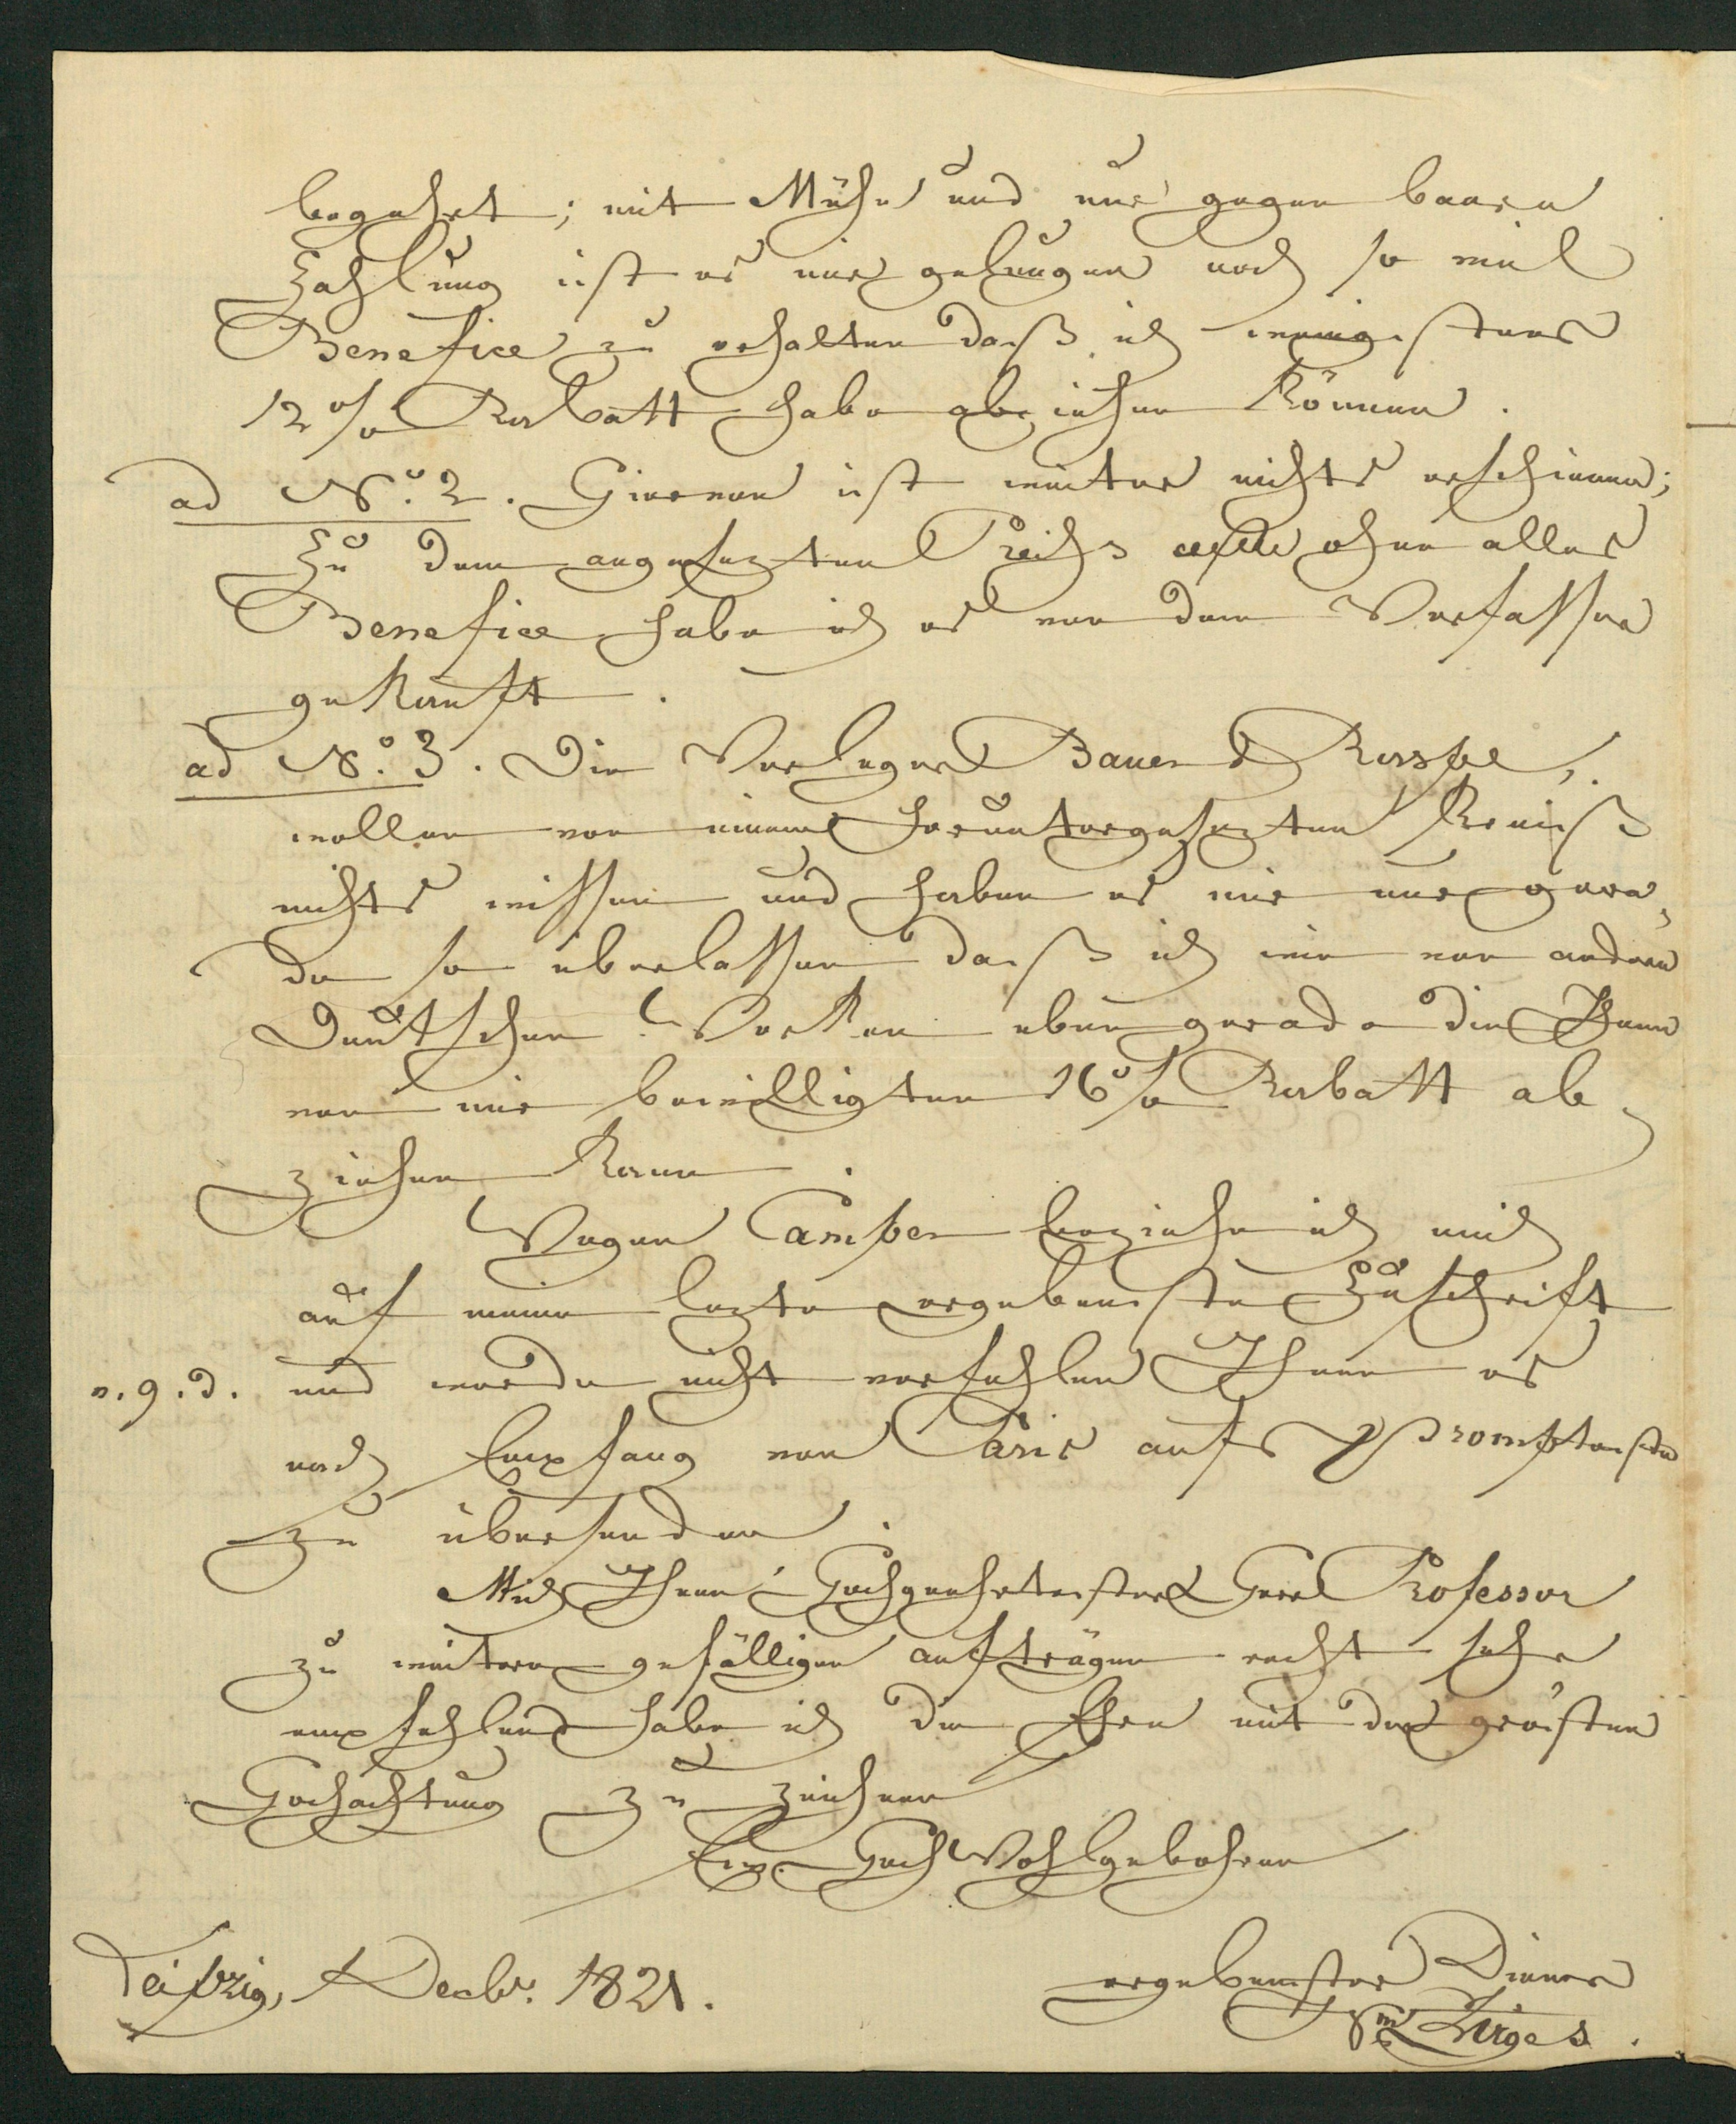 begehrt; mit Mühe und nur gegen baare
Zahlung ist es mir gelungen noch so viel
Benefice zu erhalten daß ich wenigstens
12 % Rabatt habe abziehen können.
ad No. 2. Hiervon ist weiter nichts erschienen;
Zu dem angesezten Preiße ohne alles
Benefice habe ich es von dem Verfasser
gekauft.
ad No. 3. Die Verleger Bauer & Raspe,
wollen von einem heruntergesezten Preiß
nichts wissen und haben es mir nur gera¬
de so überlassen daß ich wie von andern
Deutschen Werken eben gerade die Ihnen
von mir bewilligten 16 % Rabatt ab¬
ziehen kann.
Wegen Camper beziehe ich mich
auf meine lezte ergebenste Zuschrift
v. 9. d. und werde nicht verfehlen Ihnen es
nach Empfang von Paris aufs Prompteste
zu übersenden.
Mich Ihnen, Hochgeehrtester Herr Professor
zu weitern gefälligen aufträgen recht sehr
empfehlend habe ich die Ehre mit der grösten
Hochachtung zu zeichnen
Ew. HochWohlgebohren
Leipzig, Decbr. 1821.
ergebenster Diener
Wm Zirges.